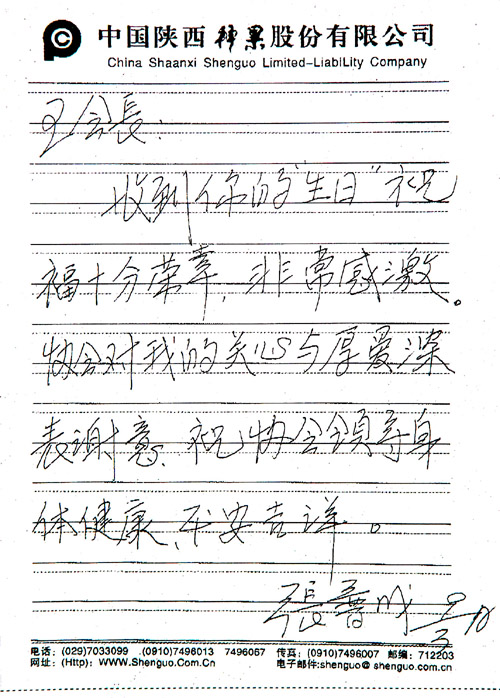 中国陕西神果股份有限公司
China Shaanxi Shenguo Limited-LiabiLity Company
王会長：
收到你的"生日"祝
福十分荣幸，非常感激。
协会对我的关心与厚爱深
表谢意。祝协会領导身
体健康、平安吉祥。
張
电话：(029)7033099 .(0910)7498013 7496067 传真：(0910)7496007 邮编：712203
网址：(Http)：WWW.Shenguo.Com.Cn 电子邮件:shenguo@shenguo.com.cn